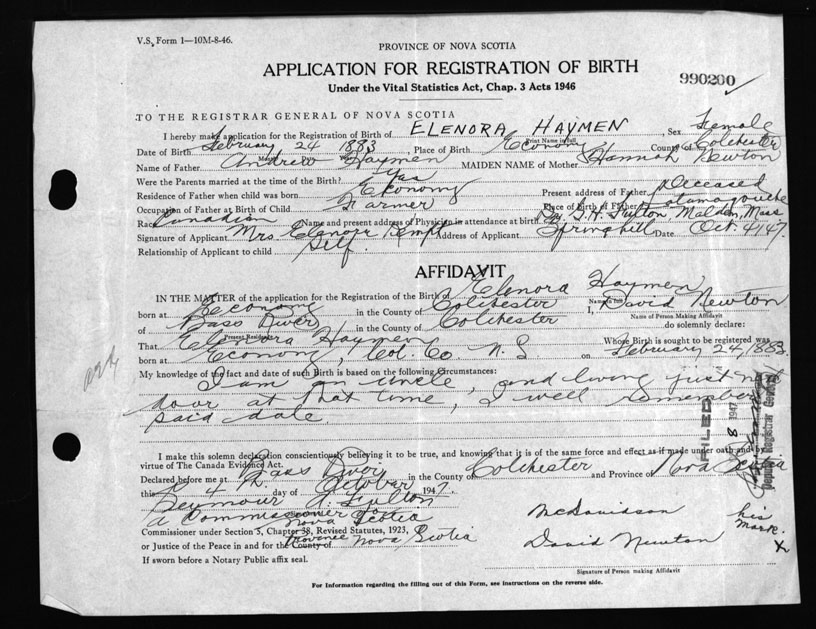 V.S. Form 1—10M-8-46.
PROVINCE OF NOVA SCOTIA
APPLICATION FOR REGISTRATION OF BIRTH
Under the Vital Statistics Act, Chap. 3 Acts 1946
990200
TO THE REGISTRAR GENERAL OF NOVA SCOTIA
I hereby make application for the Registration of Birth of ELENORA HAYMEN, Sex Female
Print Name in full
Date of Birth February 24 1883, Place of Birth Economy County of Colchester
Name of Father Andrew Haymen MAIDEN NAME of Mother Hannah Newton
Were the Parents married at the time of Birth? Yes
Residence of Father when child was born Economy Present address of Father Deceased
Occupation of Father at Birth of Child Farmer Place of Birth of Father Tatamagouche
Race Name and present address of Physician in attendance at birth Dr. T.H. Fulton Malden, Mass
Signature of Applicant Mrs. Elenora Kempt Address of Applicant Springhill Date Oct. 4/47.
Relationship of Applicant to child Self.
AFFIDAVIT
IN THE MATTER of the application for the Registration of the Birth of Elenora Haymen
born at Economy in the County of Colchester I, David Newton
Name in full
Name of Person Making Affidavit
of Bass River in the County of Colchester do solemnly declare:
Present Residence
That Elenora Haymen Whose Birth is sought to be registered was
born at Economy, Col. Co. N.S on February 24, 1883.
My knowledge of the fact and date of such Birth is based on the following Circumstances:
I am an uncle, and living just next
door at that time, I well remember
said date.
FILED
8 1947
Deputy Registrar General
I make this solemn declaration conscientiously believing it to be true, and knowing that it is of the same force and effect as if made under oath and by
virtue of The Canada Evidence Act.
Declared before me at Bass River in the County of Colchester and Province of Nova Scotia
this 4 day of October 1947.
Seymour A. Fulton
a Commissioner
Nova Scotia
McDavidson his
Commissioner under Section 5, Chapter 38, Revised Statutes, 1923, mark
or Justice of the Peace in and for the County of Province Nova Scotia David Newton X
If sworn before a Notary Public affix seal.
Signature of Person making Affidavit
For Information regarding the filling out of this Form, see instructions on the reverse side.